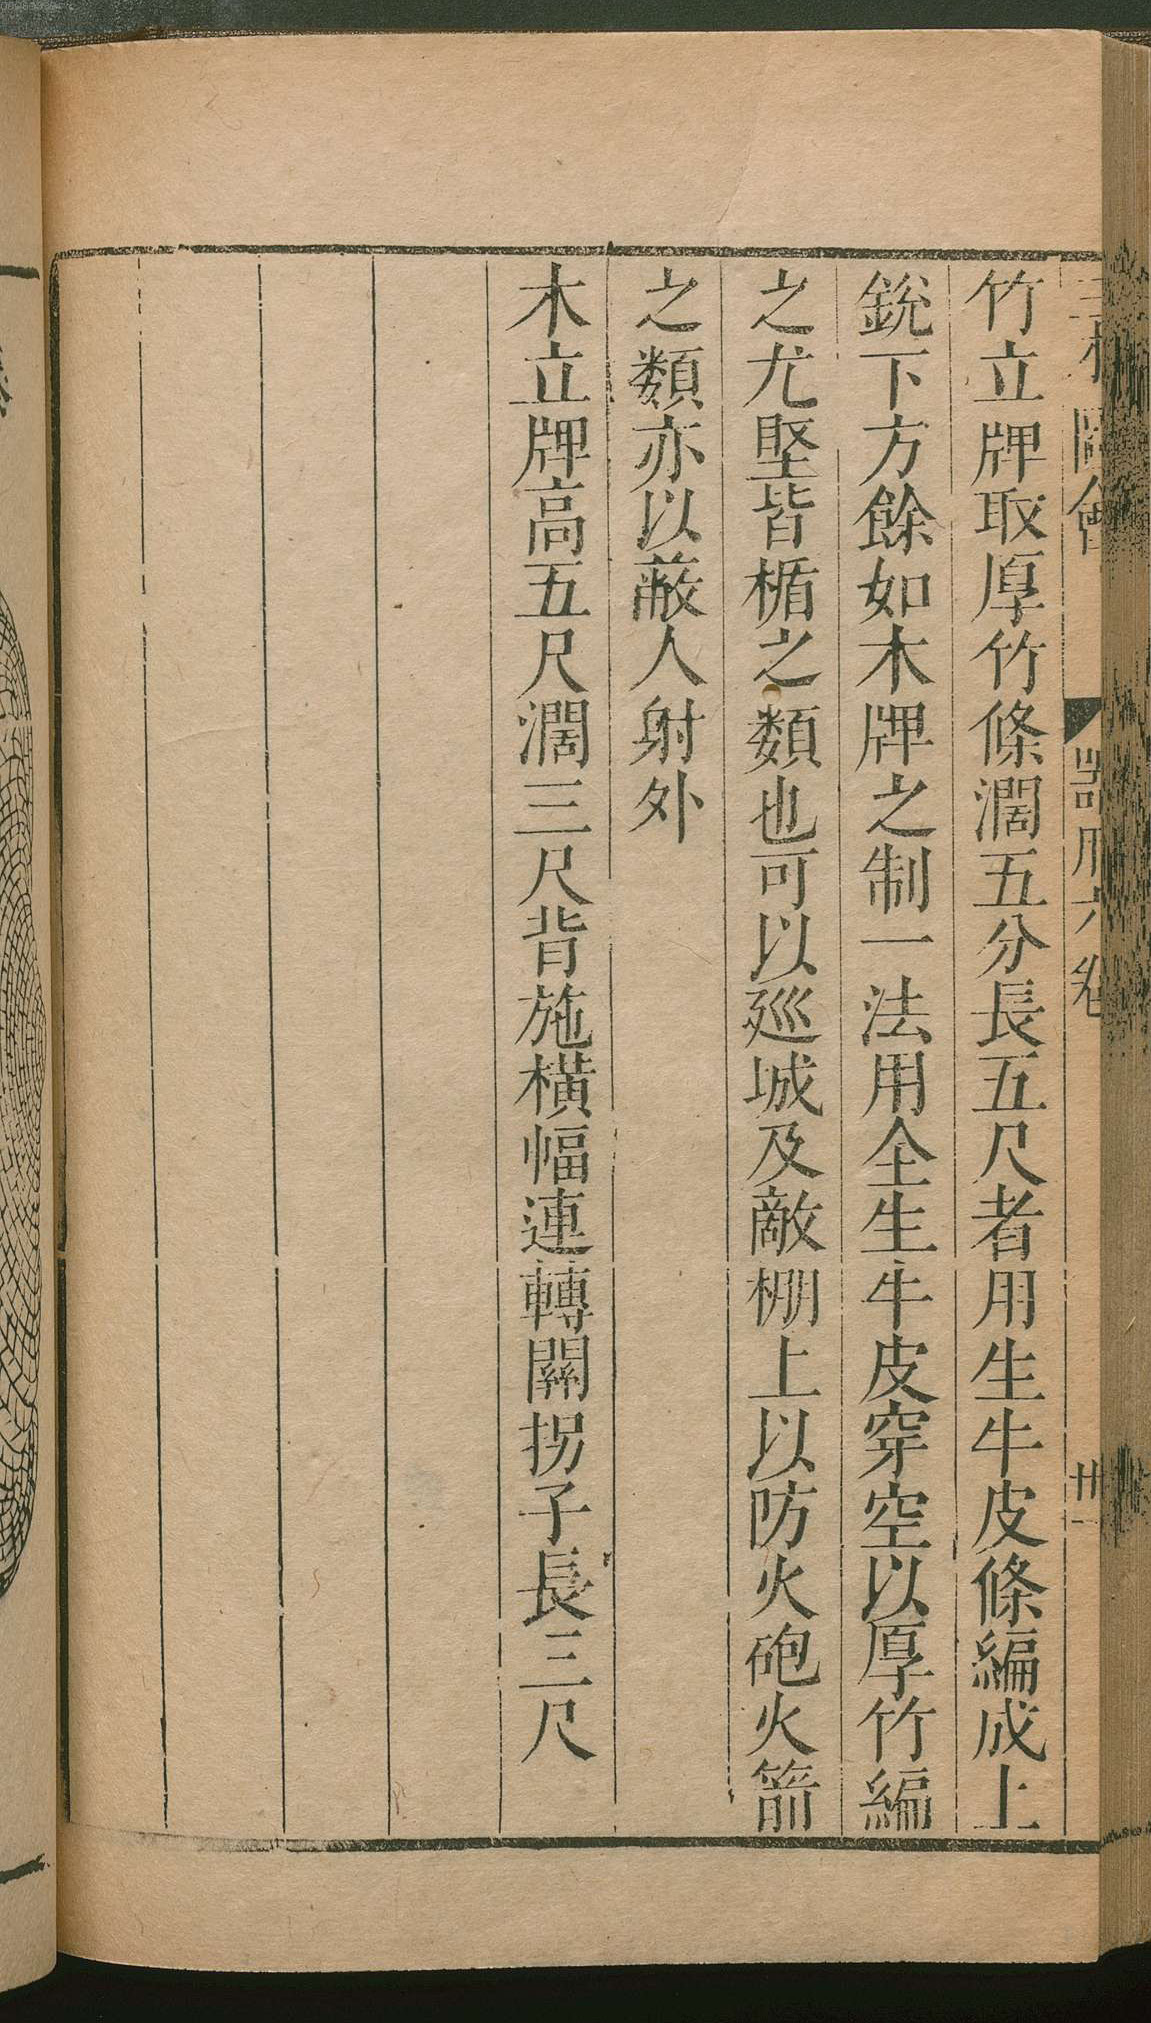 竹立牌取厚竹條濶五分長五尺者用生牛皮條編成上
銳下方餘如木牌之制一法用全生牛皮穿空以厚竹編
之尤堅皆楯之類也可以廵城及敵棚上以防火砲火箭
之類亦以蔽人射外
木立牌高五尺濶三尺背施橫幅連轉關拐子長三尺